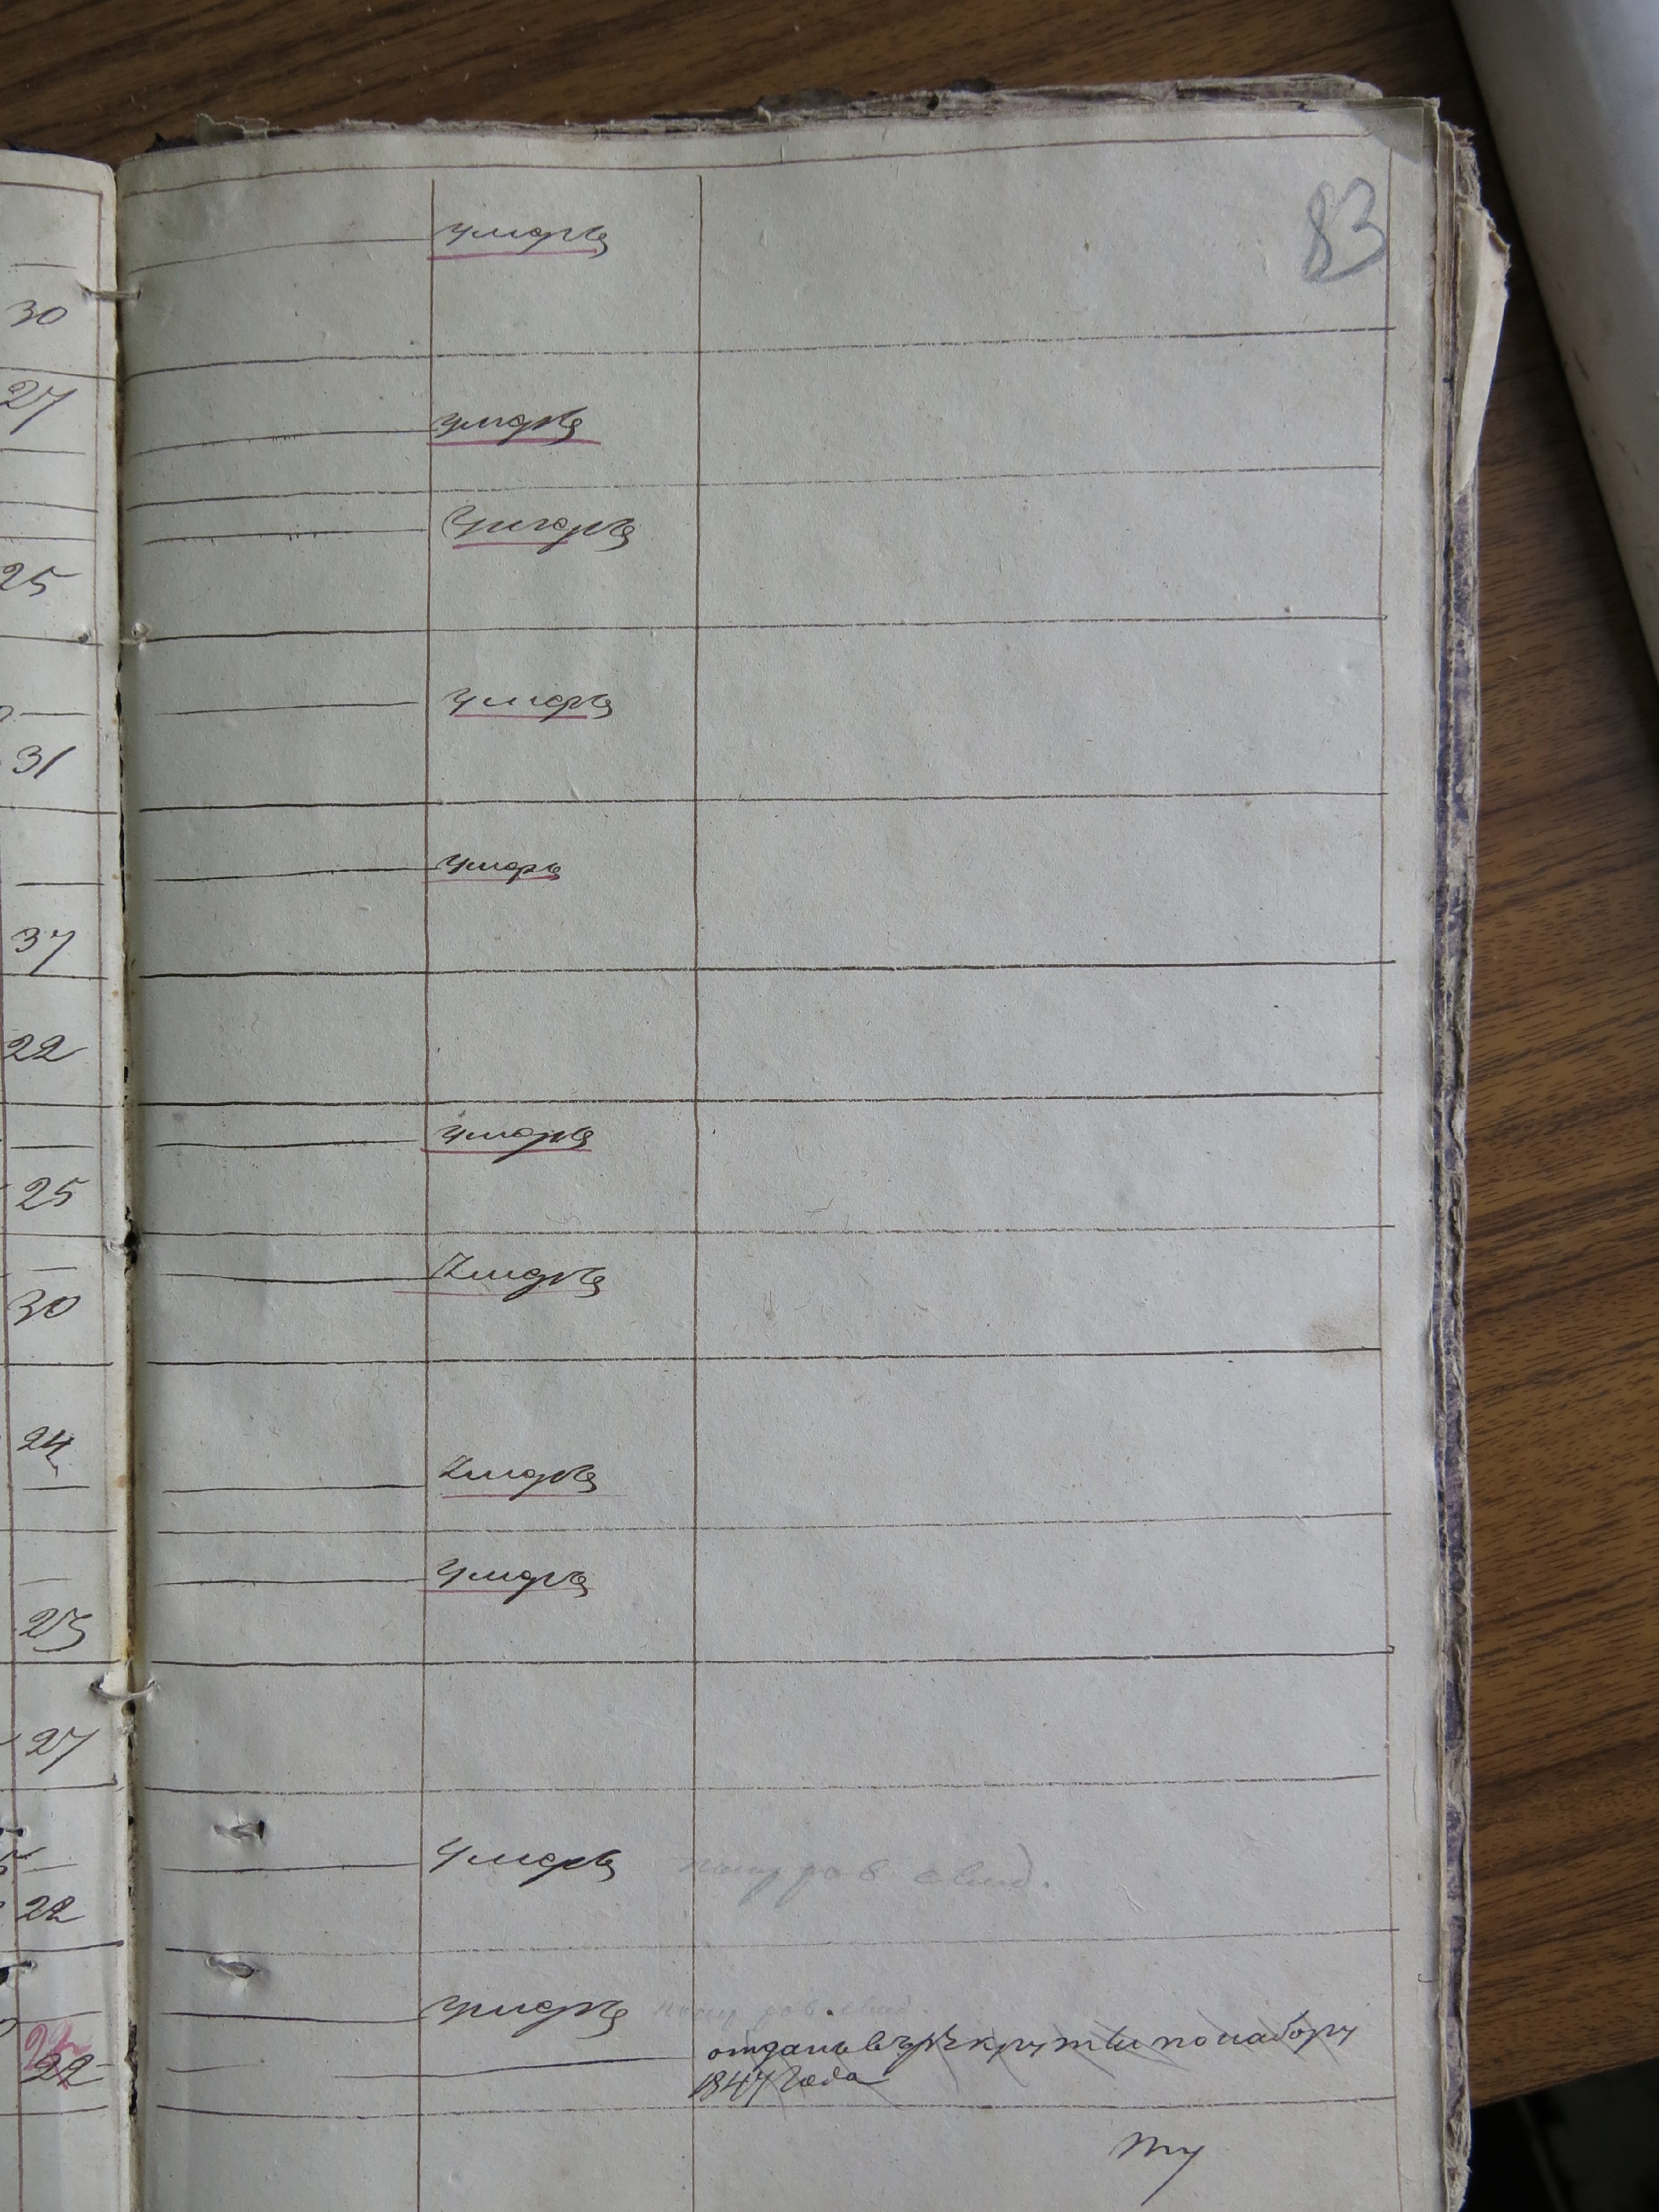 83
умеръ
30
27
умеръ
Умеръ
25
умеръ
31
умеръ
37
22
умеръ
25
Умеръ
30
24
умеръ
умеръ
25
27
Умеръ
22
умеръ
отданъ въ рѣкруты по набору
22
1847 года